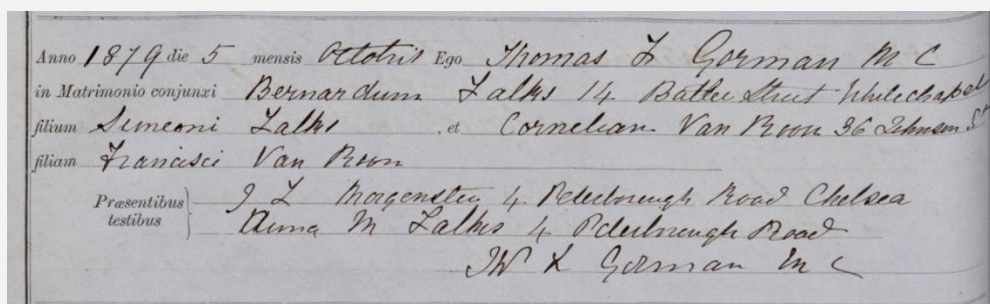 Anno 1879 die 5 mensis Octobris Ego Thomas F Gorman M C
in Matrimonio conjunxi Bernardum Falks 14 Batley Street Whitechapel
filium Simeoni Falks et Cornelian Van Roon 36 Johnson St
filiam Francisci Van Roon
Præsentibus testibus J L Morgenstern 4 Peterborough Road Chelsea
Anna M Falks 4 Peterborough Road
Gorman M C